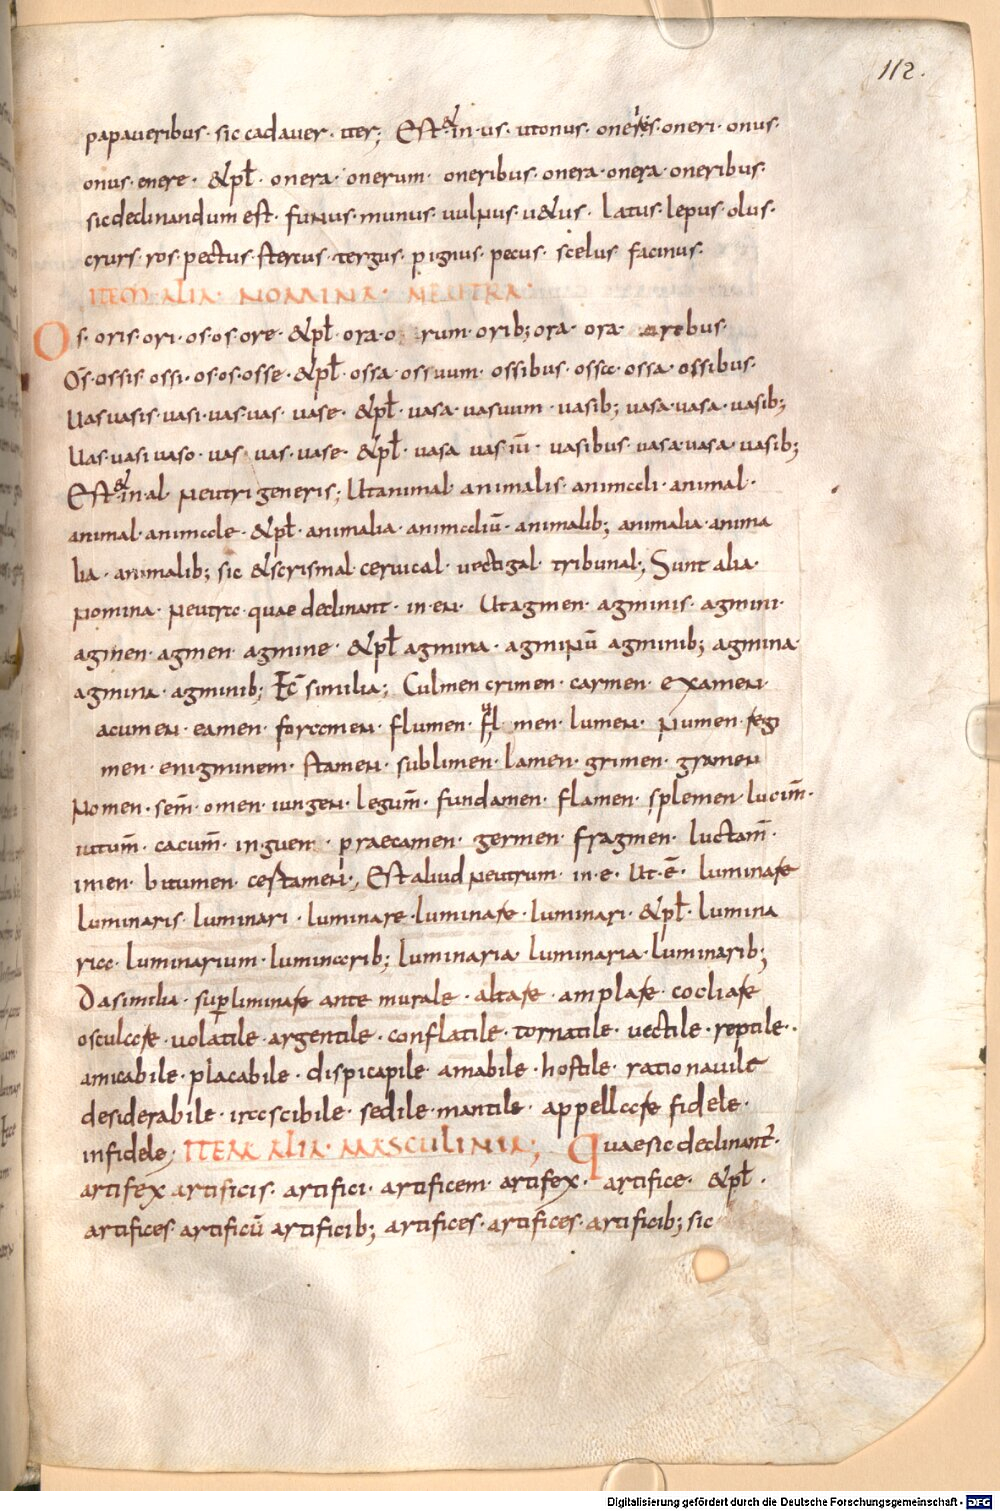 112.
papaueribus· sic cadauer· iter; Est & in ·us· utonus· oneris· oneri· onus·
onus· enere· &pł· onera· onerum· oneribus· onera· onera· oneribus·
sic declinandum est· funus· munus· uulnus· u&us· Latus· lepus· olus·
crurs· ros· pectus· stercus· tergus· pignus· pecus· scelus facinus·
ITEM ALIA· NOMINA· NEUTRA·
Os· oris· ori· os· os· ore· &pł· ora· o rum· orib; ora· ora· orebus·
Os· ossis ossi· os· os· osse· &pł· ossa· ossuum· ossibus· ossa· ossa· ossibus·
Uas uasis· uasi· uas· uas· uase· &pł· uasa· uasuum· uasib; uasa· uasa· uasib;
Uas· uasi uaso· uas· uas· uase· &pł· uasa uasiū· uasibus· uasa· uasa· uasib;
Est & in al· neutri generis; Ut animal· animalis· animali· animal·
animal· animale· &pł· animalia· animaliū· animalib; animalia· anima
lia· animalib; sic &scrismal· ceruical· uectigal· tribunal; Sunt alia·
nomina· neutra· quae declinant· in· en· Ut agmen· agminis· agmini·
agmen· agmen· agmine· &pł agmina· agminū agminib; agmina·
agmina· agminib; Ec̄ similia; Culmen crimen· carmen· examen·
acumen· eamen· foramen· flumen· fl men· lumen· numen· tegi
men· enigminem· stamen· sublimen· lamen· grimen· gramen
Nomen· sem̄· omen· iungen· legum̄· fundamen· flamen· splemen· lucim̄·
uitum̄· cacum̄· inguen· praecamen· germen· fragmen· luctam̄·
imen· bitumen· cestamen; Est aliud neutrum· in· e· Ut· ē· luminare
luminaris· luminari· luminare· luminare· luminari· &pł· lumina
ria· luminarium· luminarib; luminaria· luminaria· luminarib;
Da similia· superliminare ante murale· altare· amplare· cocliare
osculare· uolatile· argentile· conflatile· tornatile· uectile· reptile·
amicabile· placabile· dispicapile· amabile· hostile· rationauile
desiderabile· irascibile· sedile· mantile· appellare fidele·
infidele; ITEM ALIA· MASCULINIA; Quae sic declinant·
artifex artificis· artifici· artificem· artifex· artifice· &pł·
artifices· artificū artificib; artifices· artifices· artificib; sic
Digitalisierung gefördert durch die Deutsche Forschungsgemeinschaft - DFG